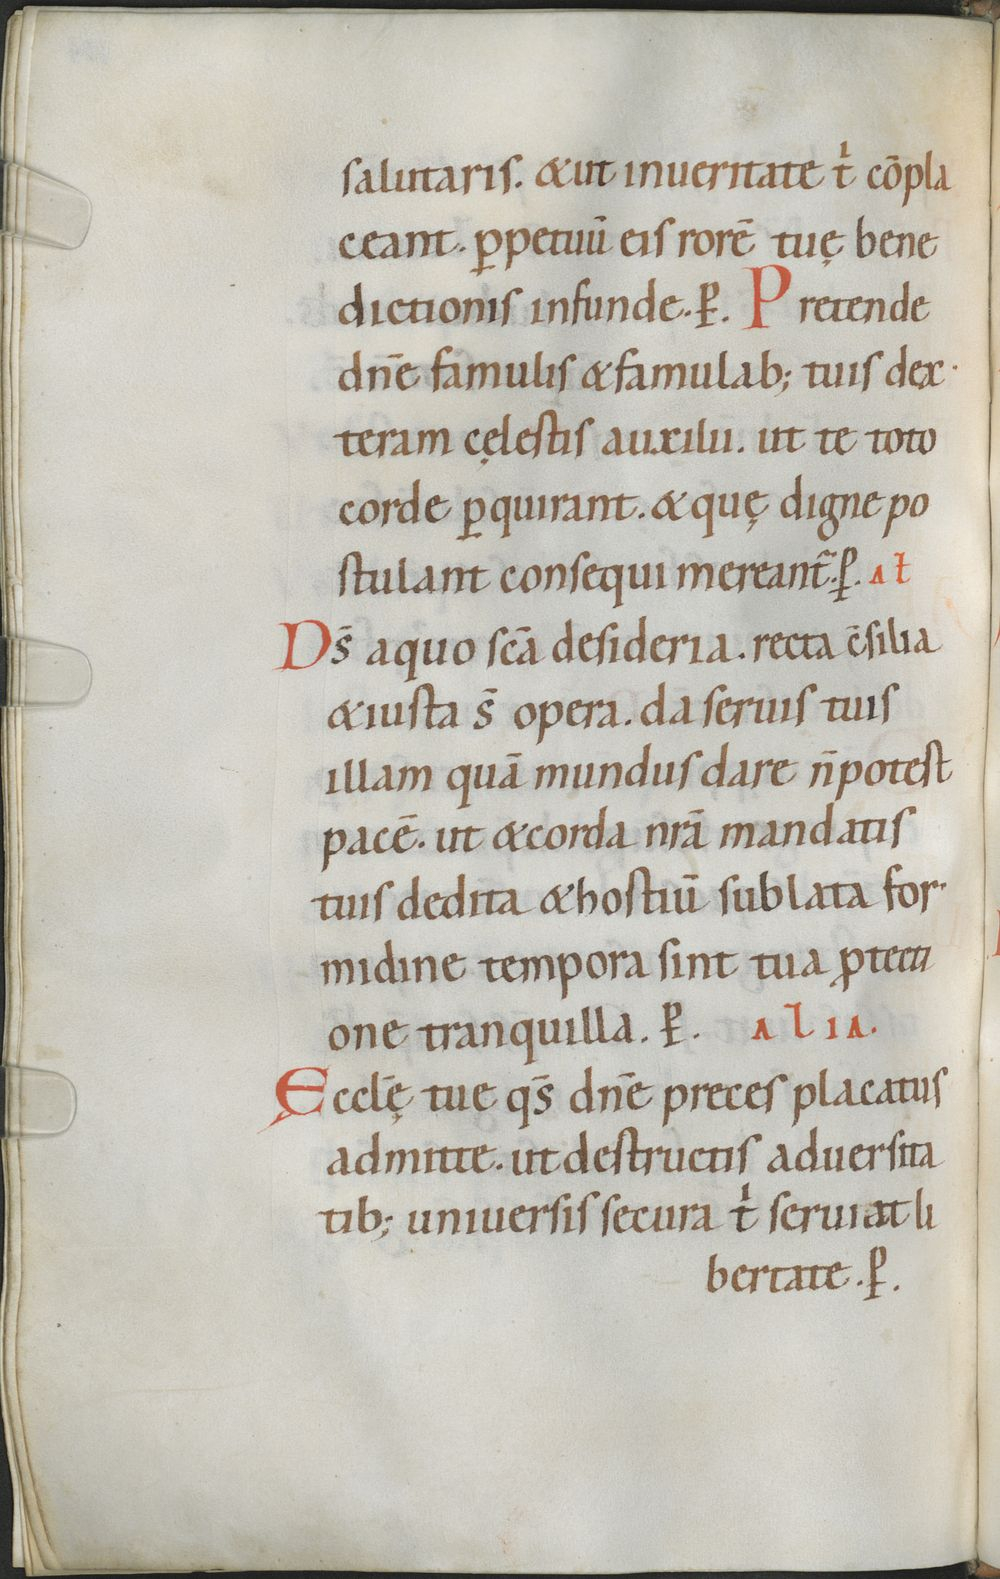 salutaris. & ut in ueritate t᷒ cōpla
ceant. ꝑpetuū eis rorē tuę bene
dictionis infunde. P̱. Pretende
dn̄e famulis & famulab; tuis dex
teram cęlestis auxilii. ut te toto
corde ꝑquirant. & quę digne po
stulant consequi mereant᷑. P̱. Al̄
Ds̄ a quo scā desideria. recta c̄silia
& iusta s̄ opera. da seruis tuis
illam quā mundus dare n̄ potest
pacē. ut & corda nr̄a mandatis
tuis dedita & hostiū sublata for
midine tempora sint tua ꝓtecti
one tranquilla. P̱. ALIA.
Eccl̄ę tue qs̄ dn̄e preces placatus
admitte. ut destructis aduersita
tib; uniuersis secura t᷒ seruiat li
bertate. P̱.